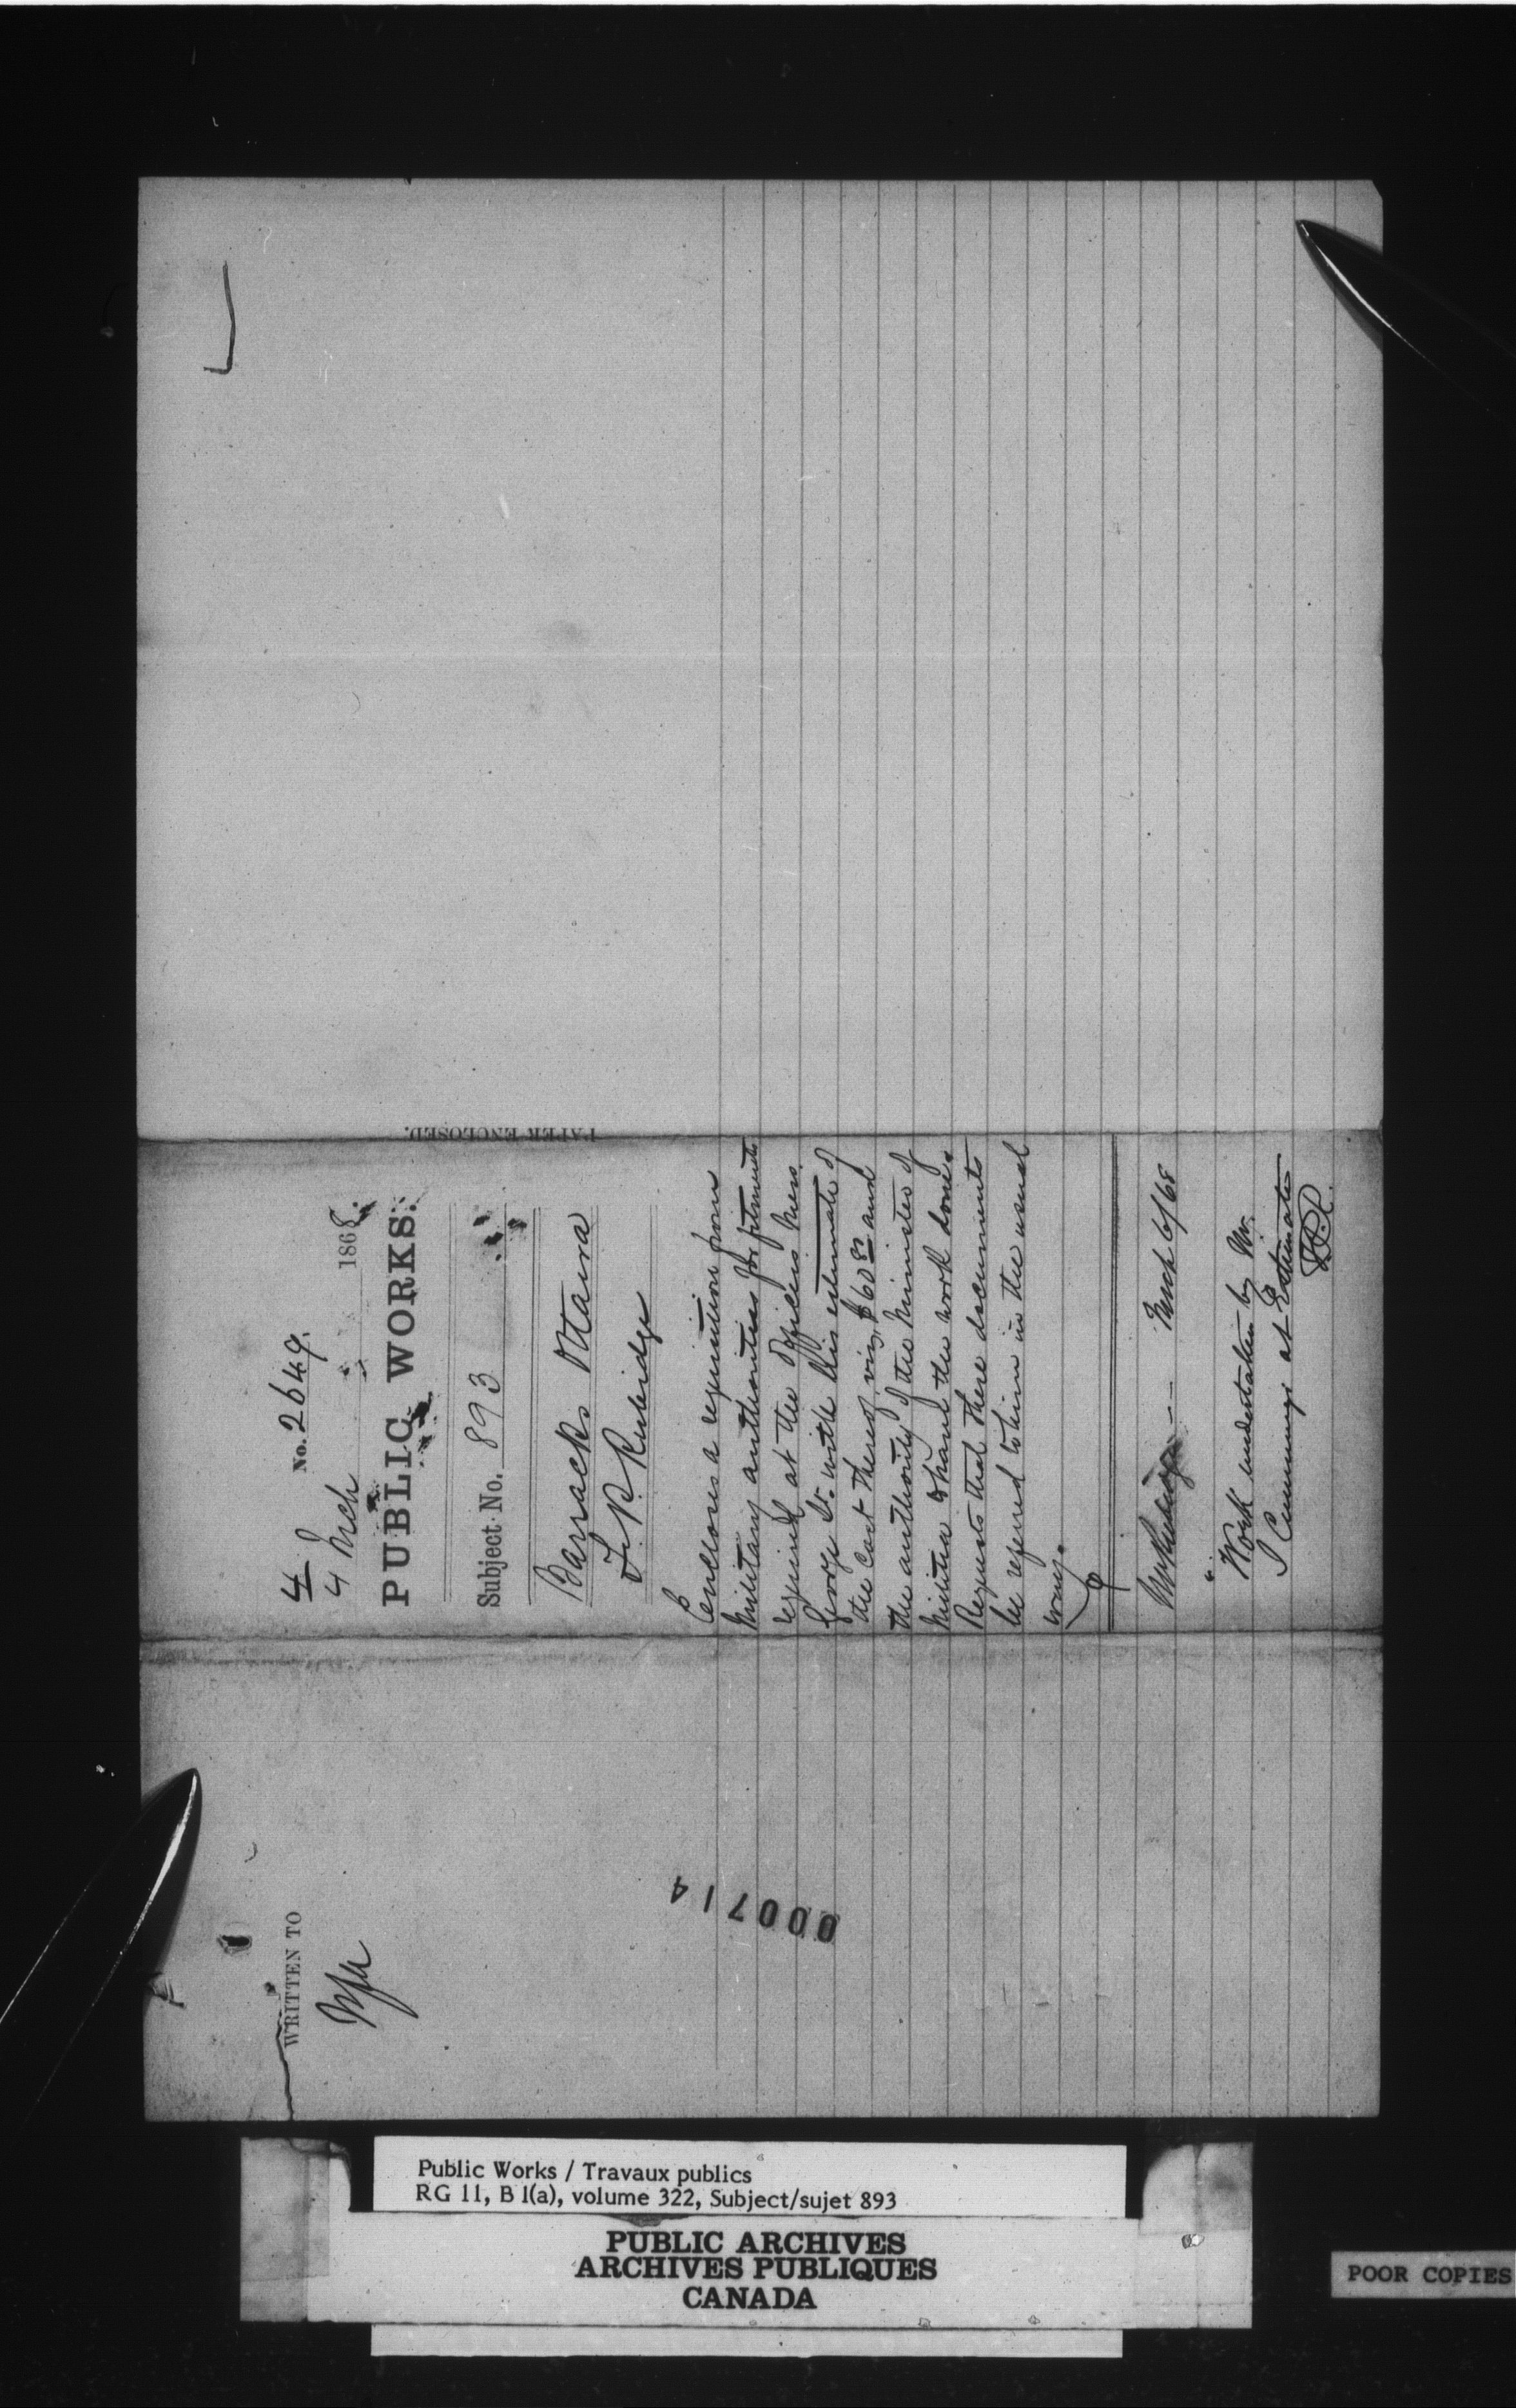 4 No. 2649.
4 Mch 1868.
PUBLIC WORKS.
Subject No. 893
Barracks Ottawa
F. P. Rubidge
Encloses a requisition from
Military authorities for fitments
required at the Officers Mess
George St. with his estimate of
the cost thereof, viz, $60 and
the authority of the Minister of
Militia to have the work done
Requests that these documents
be referred to him in the usual
way.
Mr Rubidge -- March 6/68
"Work undertaken by Mr.
Cummings at Estimate
PAPER ENCLOSED.
WRITTEN TO
000714
Public Works / Travaux publics
RG 11, B 1(a), volume 322, Subject/sujet 893
PUBLIC ARCHIVES
ARCHIVES PUBLIQUES
CANADA
POOR COPIES